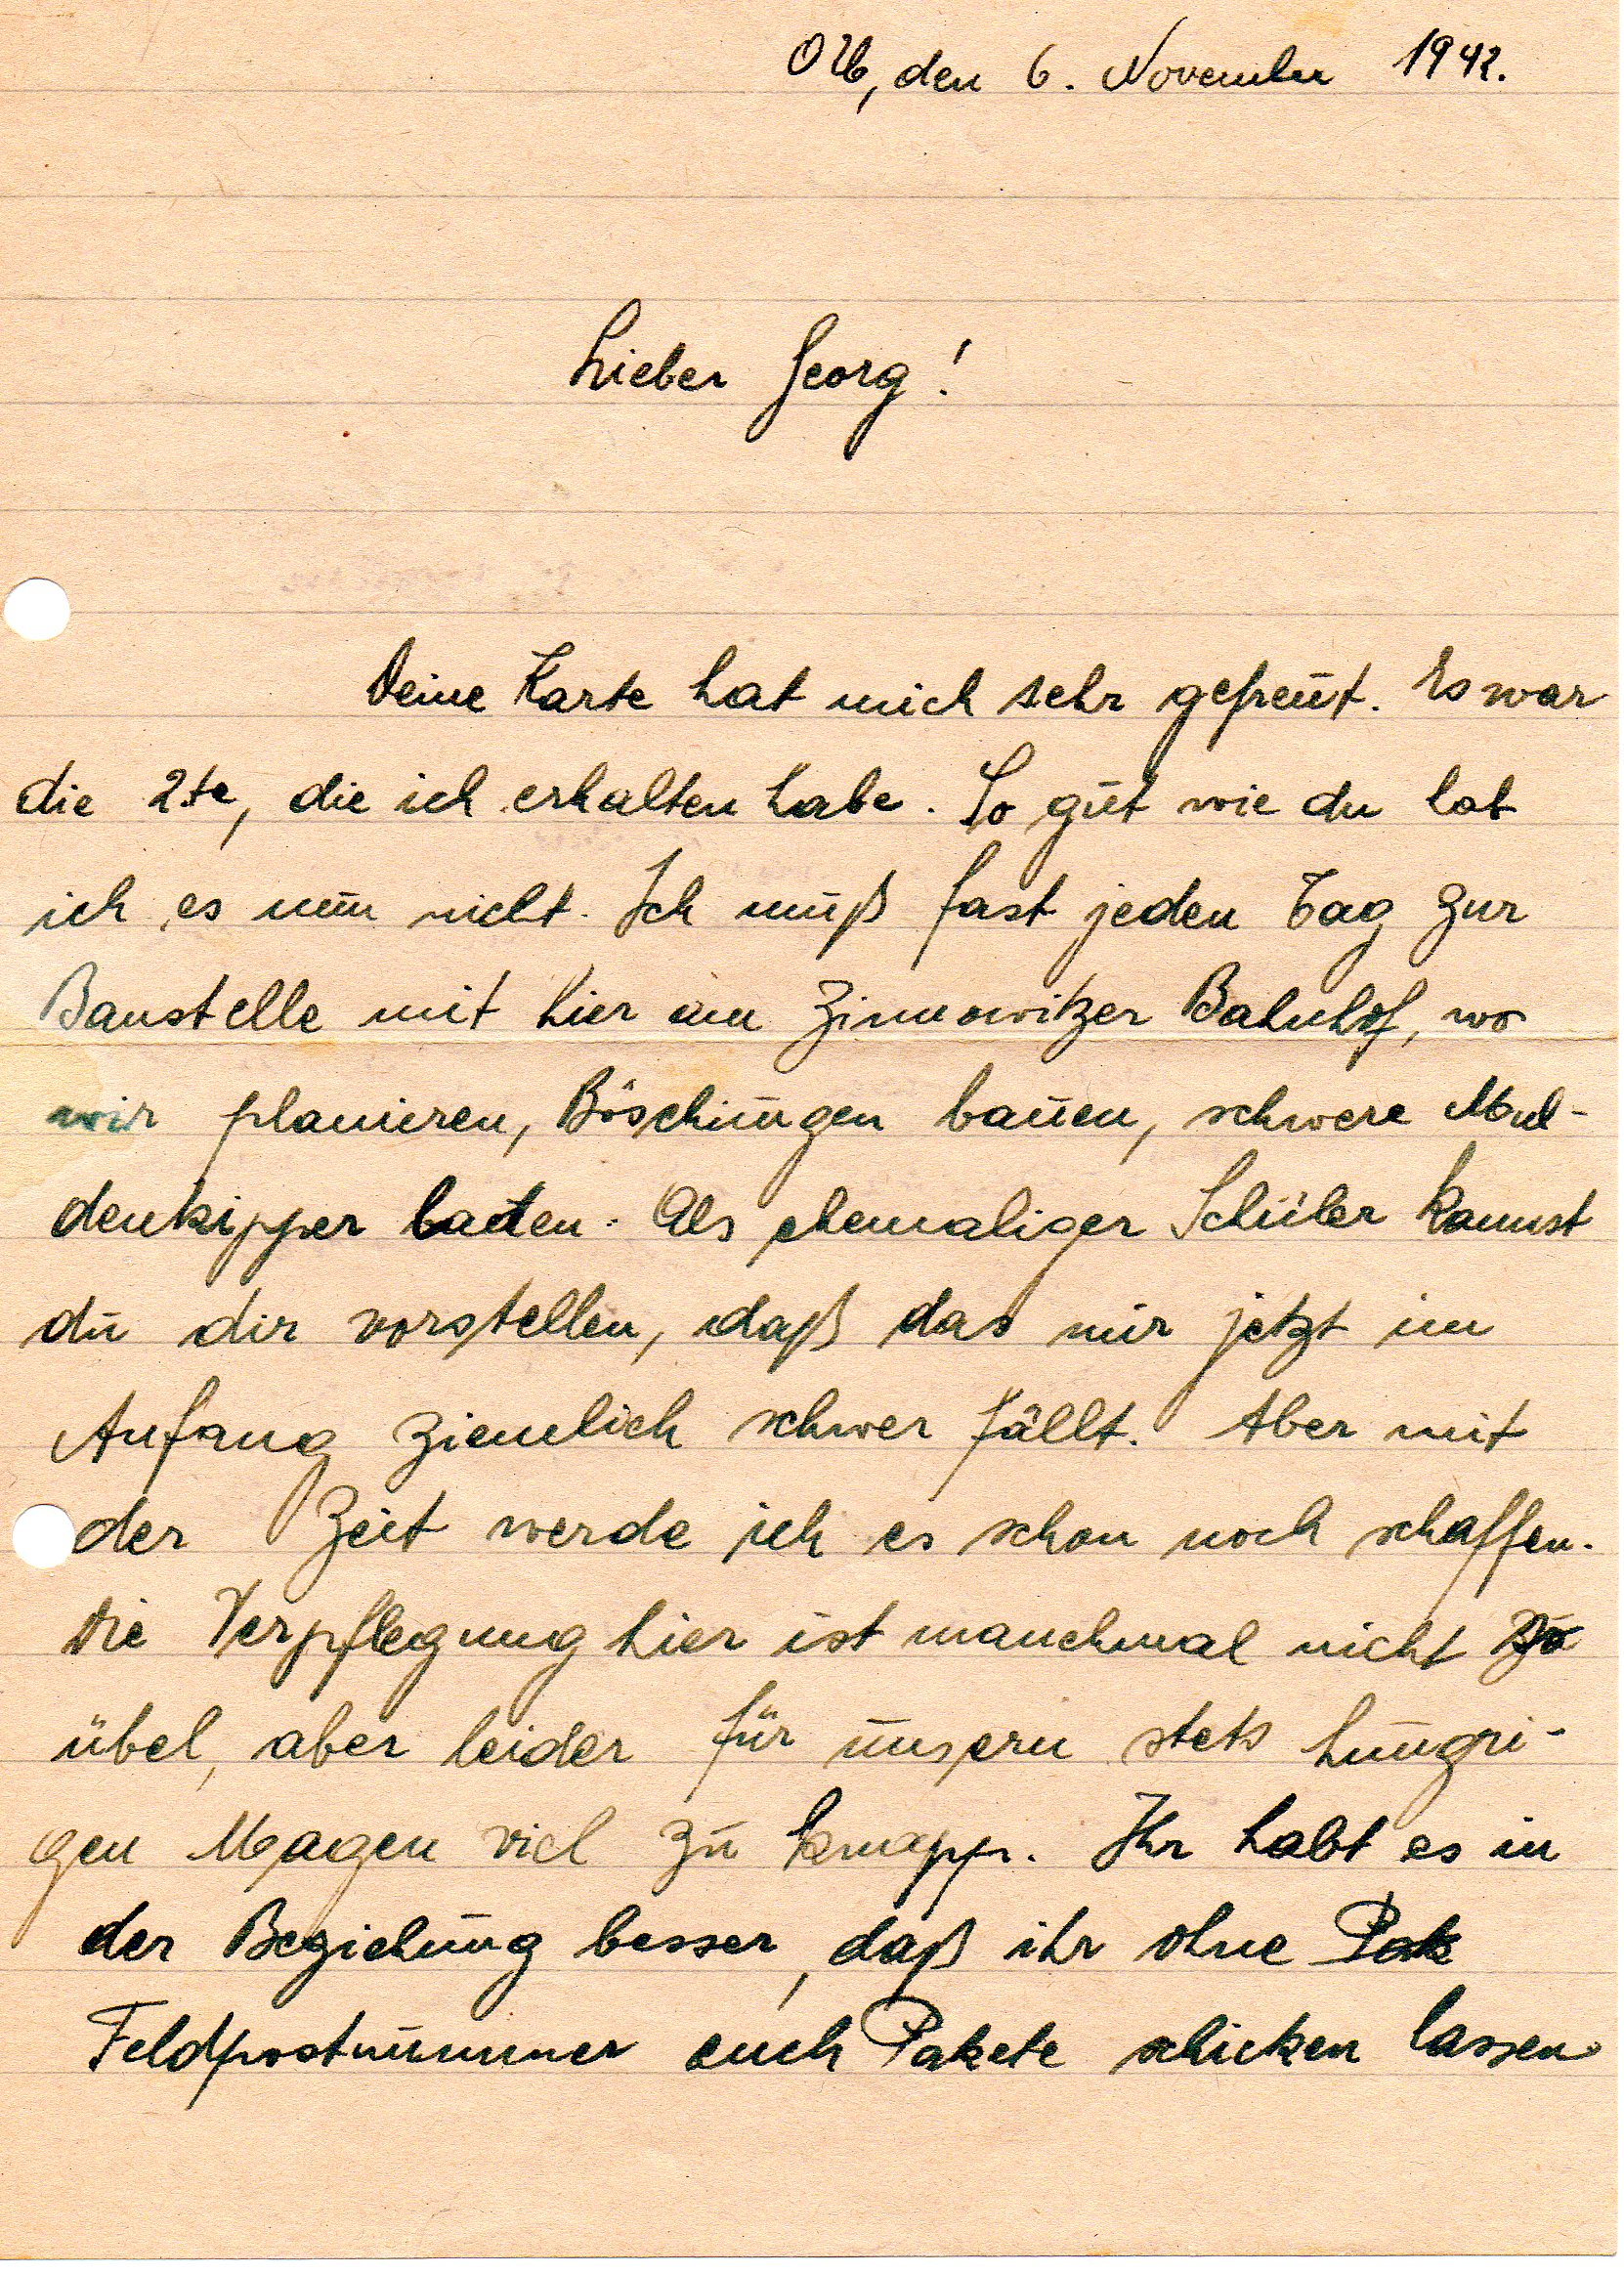 OU, den 6. November 1942.
Lieber Georg!
Deine Karte hat mich sehr gefreut. Es war
die 2te, die ich erhalten habe. So gut wie du hab
ich es nun nicht. Ich muß fast jeden Tag zur
Baustelle mit hier am Zinnowitzer Bahnhof, wo
wir planieren, Böschungen bauen, schwere Mul-
denkipper laden. Als ehemaliger Schüler kannst
du dir vorstellen, daß das mir jetzt im
Anfang ziemlich schwer fällt. Aber mit
der Zeit werde ich es schon noch schaffen.
Die Verpflegung hier ist manchmal nicht
übel, aber leider für unsern stets hungri-
gen Magen viel zu knapp. Ihr habt es in
der Beziehung besser, daß ihr ohne Pak
Feldpostnummer euch Pakete schicken lassen